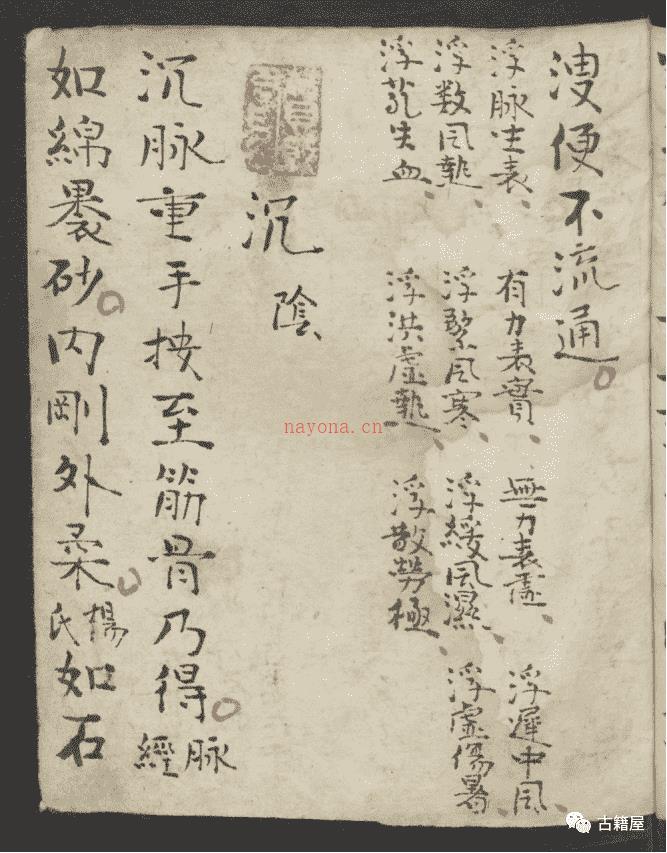 溲便不流通。
浮脉主表、有力表實、無力表虛、浮遲中風、
浮数风熱、浮緊风寒、浮緩风濕、浮虛傷暑、
浮芤失血、浮洪虛熱、浮散勞極、
沉陰
沉脉重手按至筋骨乃得。脉經
如綿裹砂。内剛外柔。楊氏如石
nayona.cn
古籍屋